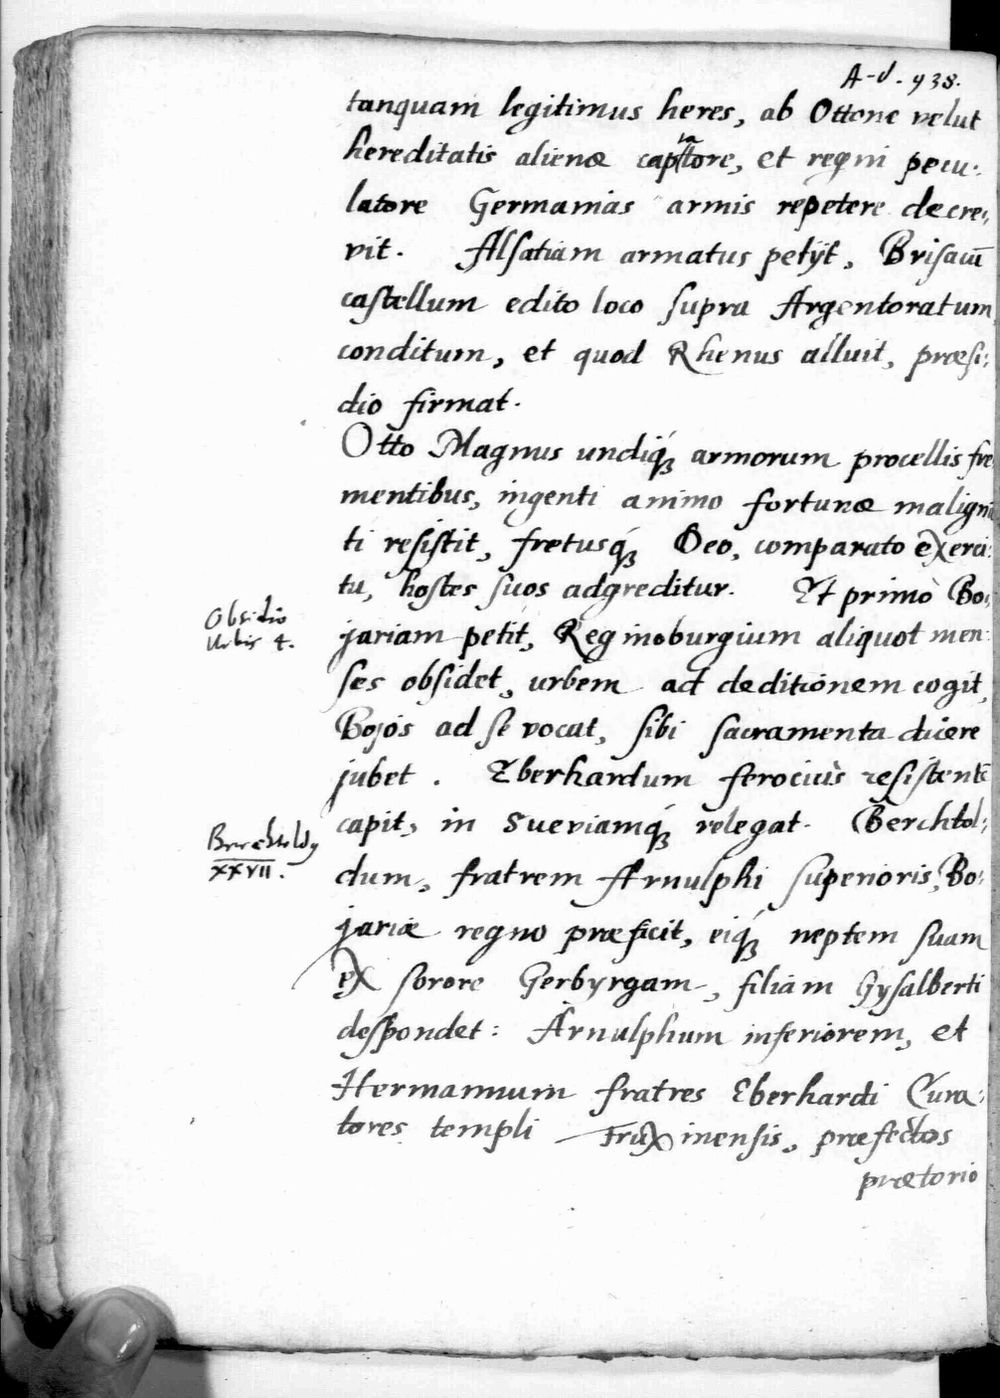 A-d. 938.
tanquam legitimus heres, ab Ottone velut
hereditatis alienæ captatore, et regni pecu-
latore Germanias armis repetere decre-
vit. Alsatiam armatus petÿt, Brisacū
castellum edito loco supra Argentoratum
conditum, et quod Rhenus alluit, præsi-
dio firmat.
Otto Magnus undiq́ꝫ armorum procellis fre
mentibus, ingenti animo fortunæ maligni
ti resistit, fretusq́ꝫ Deo, comparato exerci-
tu, hostes suos adgreditur. Et primò Bo-
Obsidio
Urbis 4.
jariam petit, Reginoburgium aliquot men-
ses obsidet, urbem ad deditionem cogit,
Bojos ad se vocat, sibi sacramenta dicere
jubet. Eberhardum ferociùs resistentē
capit, in Sueviamq́ꝫ relegat. Berchtol-
XXVII.
dum, fratrem Arnulphi superioris, Bo-
jariæ regno præficit, eiq́ꝫ neptem suam
ex sorore Gerbyrgam, filiam Gysalberti
despondet: Arnulphum inferiorem, et
Hermannum fratres Eberhardi Cura-
tores templi Fruxinensis, præfectos
prætorio